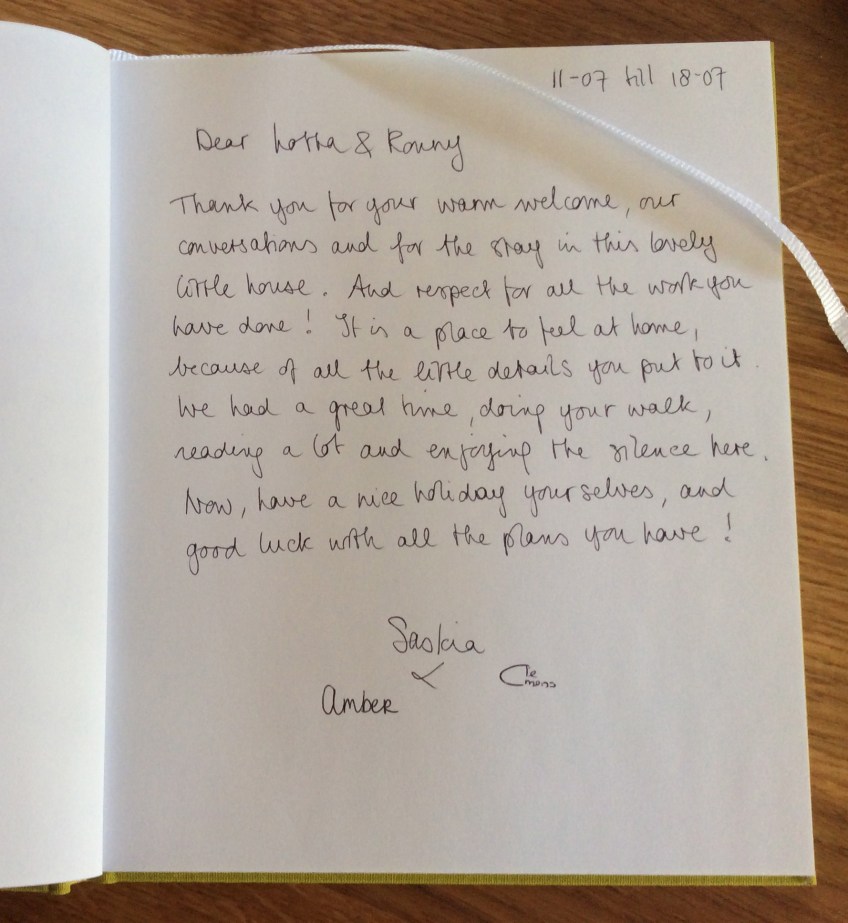 11-07 till 18-07
Dear Lotta & Ronny
Thank you for your warm welcome, our
conversations and for the stay in this lovely
little house. And respect for all the work you
have done! It is a place to feel at home,
because of all the little details you put to it.
We had a great time, doing your walk,
reading a lot and enjoying the silence here.
Now, have a nice holiday yourselves, and
good luck with all the plans you have!
Saskia
&
Clemens
Amber